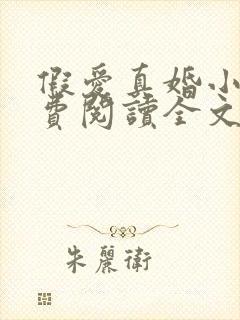 假愛真婚小
費閱讀全文
朱麗衛